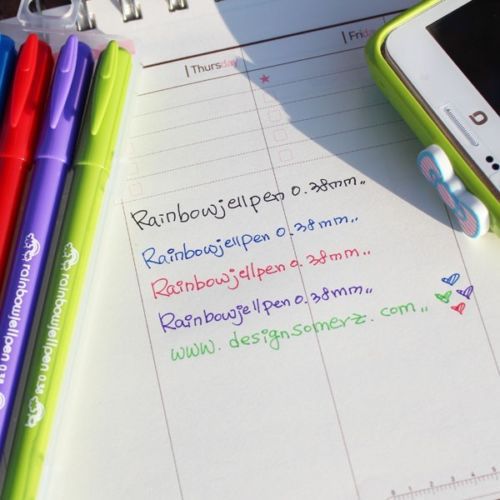 Thursday
Frid
Rainbowjellpen 0.38mm..
Rainbowjellpen 0.38mm..
Rainbowjellpen 0.38mm..
Rainbowjellpen 0.38mm..
www.designsomerz.com..
rainbowjellpen 0.38
rainbowjellpen 0.38